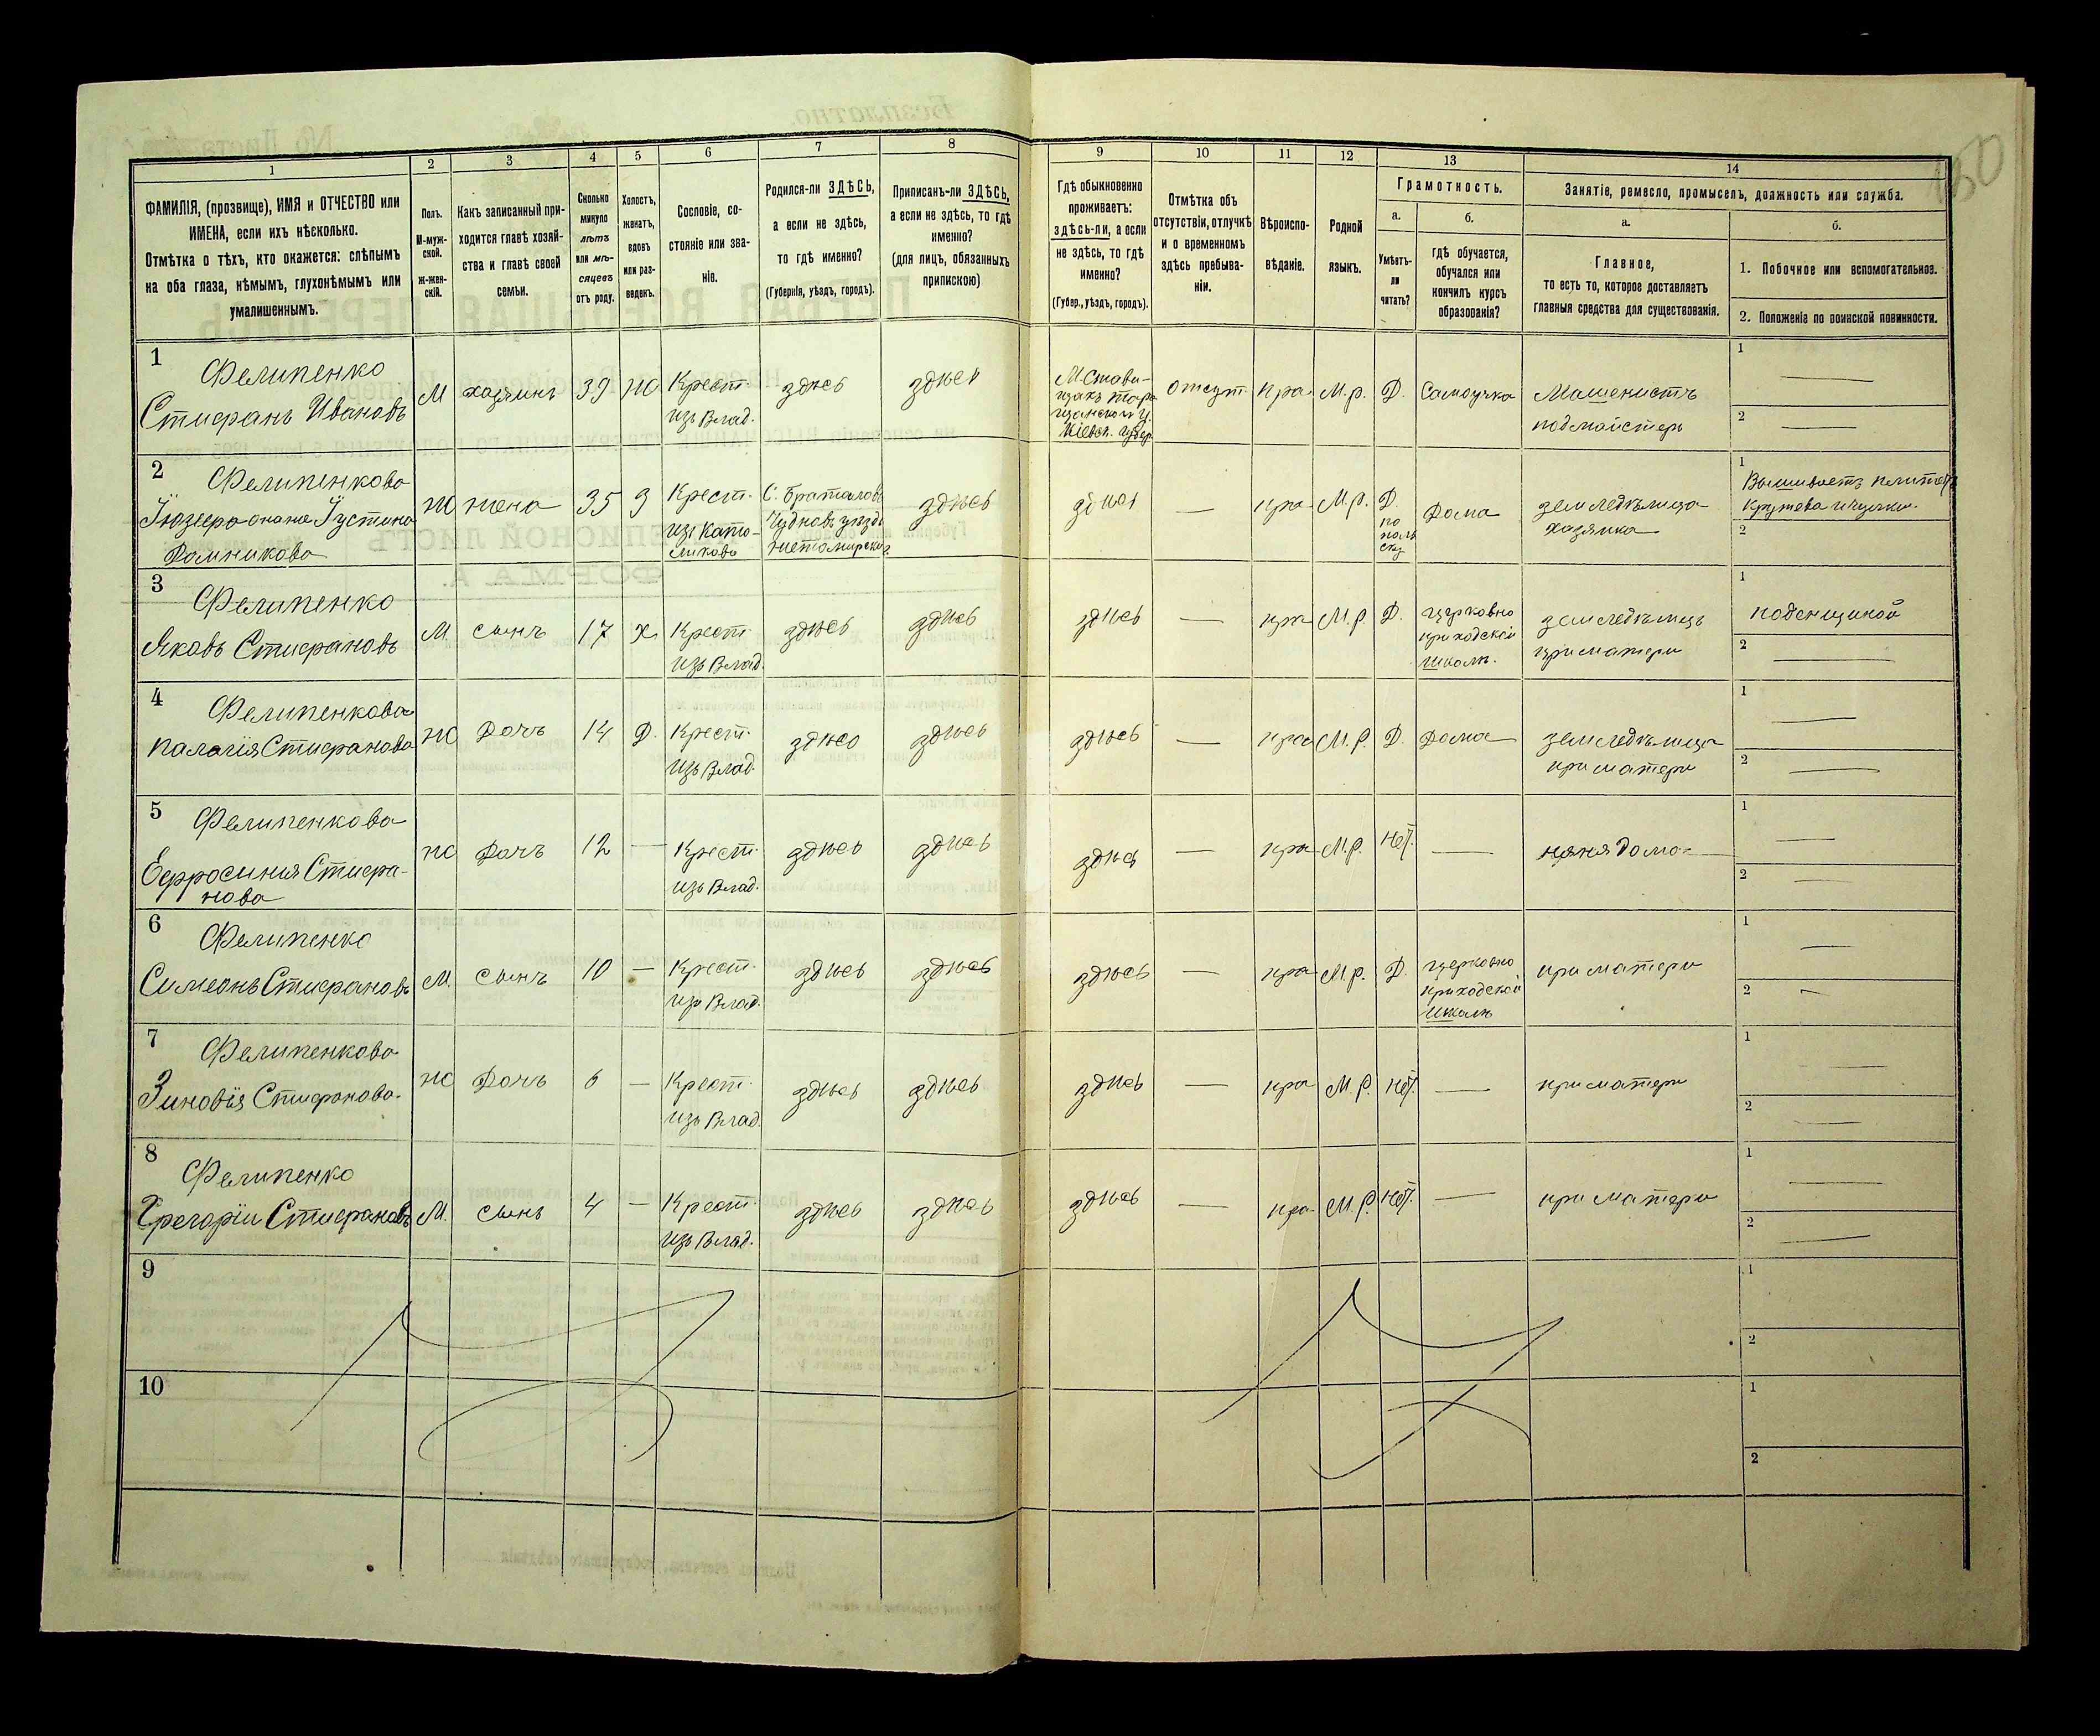 150
1
ФАМИЛІЯ, (прозвище), ИМЯ и ОТЧЕСТВО или
ИМЕНА, если ихъ нѣсколько.
Отмѣтка о тѣхъ, кто окажется: слѣпымъ
на оба глаза, нѣмымъ, глухонѣмымъ или
умалишеннымъ.
2
Полъ.
М-муж-
ской.
ж-жен-
скій.
3
Какъ записанный при-
ходится главѣ хозяй-
ства и главѣ своей
семьи.
4
Сколько
минуло
лѣтъ
или мѣ-
сяцевъ
отъ роду.
5
Холостъ,
женатъ,
вдовъ
или раз-
веденъ.
6
Сословіе, со-
стояніе или зва-
ніе.
7
Родился-ли ЗДѢСЬ,
а если не здѣсь,
то гдѣ именно?
(Губернія, уѣздъ, городъ).
8
Приписанъ-ли ЗДѢСЬ,
а если не здѣсь, то гдѣ
именно?
(для лицъ, обязанныхъ
припискою)
9
Гдѣ обыкновенно
проживаетъ:
здѣсь-ли, а если
не здѣсь, то гдѣ
именно?
(Губер., уѣздъ, городъ).
10
Отмѣтка объ
отсутствіи, отлучкѣ
и о временномъ
здѣсь пребыва-
ніи.
11
Вѣроиспо-
вѣданіе.
12
Родной
языкъ.
13
Грамотность.
а.
Умѣетъ-
ли
читать?
б.
гдѣ обучается,
обучался или
кончилъ курсъ
образованія?
14
Занятіе, ремесло, промыселъ, должность или служба.
а.
Главное,
то есть то, которое доставляетъ
главныя средства для существованія.
б.
1. Побочное или вспомогательное.
2. Положеніе по воинской повинности.
1
Фелипенко
Стифанъ Ивановъ
М
хазяинъ
39
Ж
Крест.
изъ Влад.
здѣсь
здѣсь
М. Стави-
щахъ Тара
щанском У.
Кіевск. Губер.
отсут.
пра.
М.р.
Д.
Самоучка
Машенистъ
подмайстеръ
1
2
2
Фелипенкова
Юзефа онаже Іустина
Домникова
Ж
жена
35
З
Крест.
изъ Като-
ликовъ
С. Браталовъ
Чудновъ уѣзд.
Житомирской
здѣсь
здѣсь
пра
М.р.
Д.
по
поль
ску
Дома
земледѣлица
хазяика
1
Вышиваетъ
Кружева и Чулки.
2
3
Фелипенко
Яковъ Стифановъ
М.
сынъ
17
х.
Крест
изъ Влад.
здѣсь
здѣсь
здѣсь
пра
М.р.
Д.
церковно
приходской
школѣ.
земледѣлецъ
при матери
1
поденщиной
2
4
Фелипенкова
Палагія Стифанова
Ж
Дочъ
14
Д.
Крест.
изъ Влад.
здѣсь
здѣсь
здѣсь
пра
М.р.
Д.
Дома
земледѣлица
при матери
1
2
5
Фелипенкова
Ефросинія Стифа-
нова
Ж
Дочъ
12
Крест.
изъ Влад.
здѣсь
здѣсь
здѣсь
пра
М.р.
Нет.
няня дома
1
2
6
Фелипенко
Симеонъ Стифановъ
М.
сынъ
10
Крест.
изъ Влад.
здѣсь
здѣсь
здѣсь
пра
М.р.
Д.
церковно
приходской
школѣ
при матери
1
2
7
Фелипенкова
Зиновія Стифанова.
Ж
Дочъ
6
Крест.
изъ Влад.
здѣсь
здѣсь
здѣсь
пра
М.р.
Нет.
при матери
1
2
8
Фелипенко
Грегорій Стифановъ
М.
сынъ
4
Крест.
изъ Влад.
здѣсь
здѣсь
здѣсь
пра
М.р.
Нет.
при матери
1
2
9
1
2
10
1
2